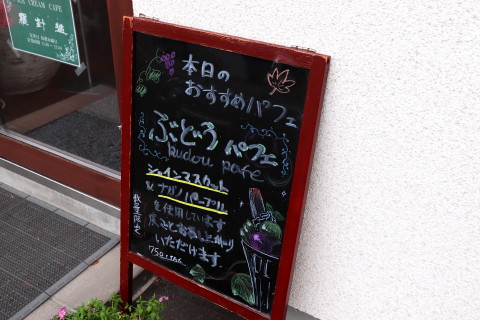 ICE CREAM CAFE
本日の
おすすめパフェ
ぶどうパフェ
budou pafe
シャインマスカット
& ナガノパープル
を使用しています
皮ごとお召し上がり
いただけます。
数量限定